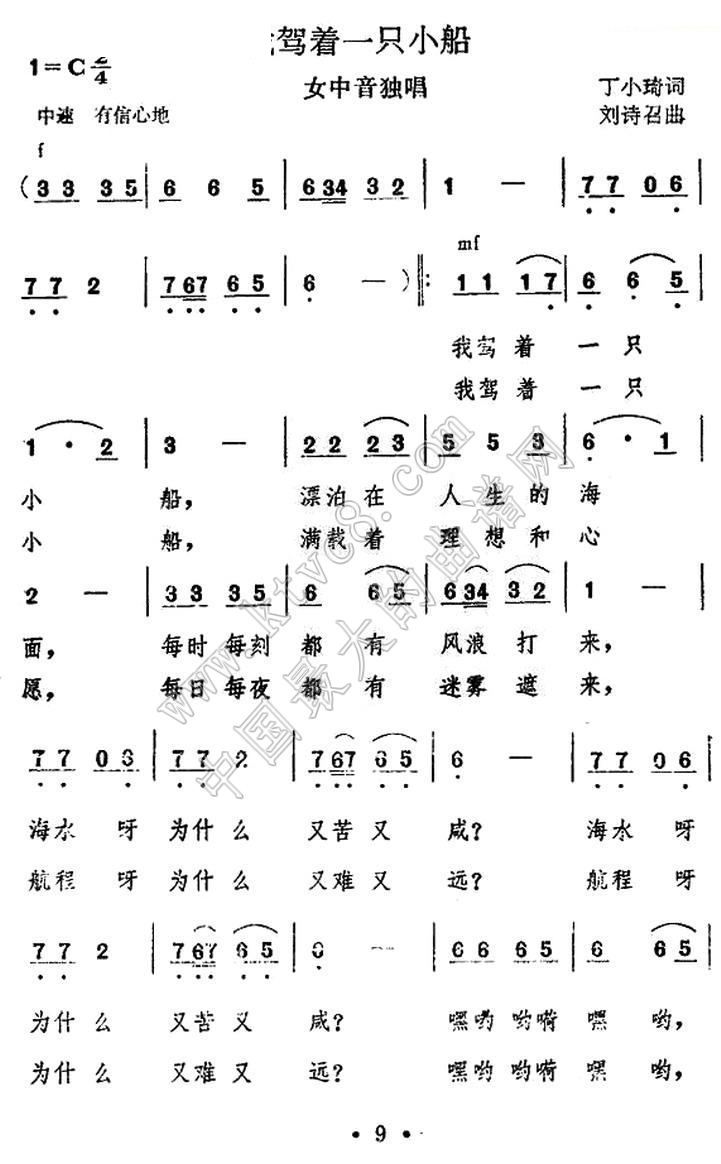 驾着一只小船
1=C 2/4
女中音独唱
丁小琦词
中速 有信心地
刘诗召曲
f
(3 3 3 5 | 6 6 5 | 6 34 3 2 | 1 — | 7 7 0 6 |
mf
7 7 2 | 7 67 6 5 | 6 — ) ‖: 1 1 1 7 | 6 6 5 |
我驾着一只
我驾着一只
1 · 2 | 3 — | 2 2 2 3 | 5 5 3 | 6 · 1 |
小船，漂泊在人生的海
小船，满载着理想和心
2 — | 3 3 3 5 | 6 6 5 | 6 34 3 2 | 1 — |
面，每时每刻都有风浪打来，
愿，每日每夜都有迷雾遮来，
7 7 0 6 | 7 7 2 | 7 67 6 5 | 6 — | 7 7 0 6 |
海水呀为什么又苦又咸？海水呀
航程呀为什么又难又远？航程呀
7 7 2 | 7 67 6 5 | 6 — | 6 6 6 5 | 6 6 5 |
为什么又苦又咸？嘿哟哟嗬嘿哟，
为什么又难又远？嘿哟哟嗬嘿哟，
· 9 ·
www.ktvc8.com
中国最大的曲谱网